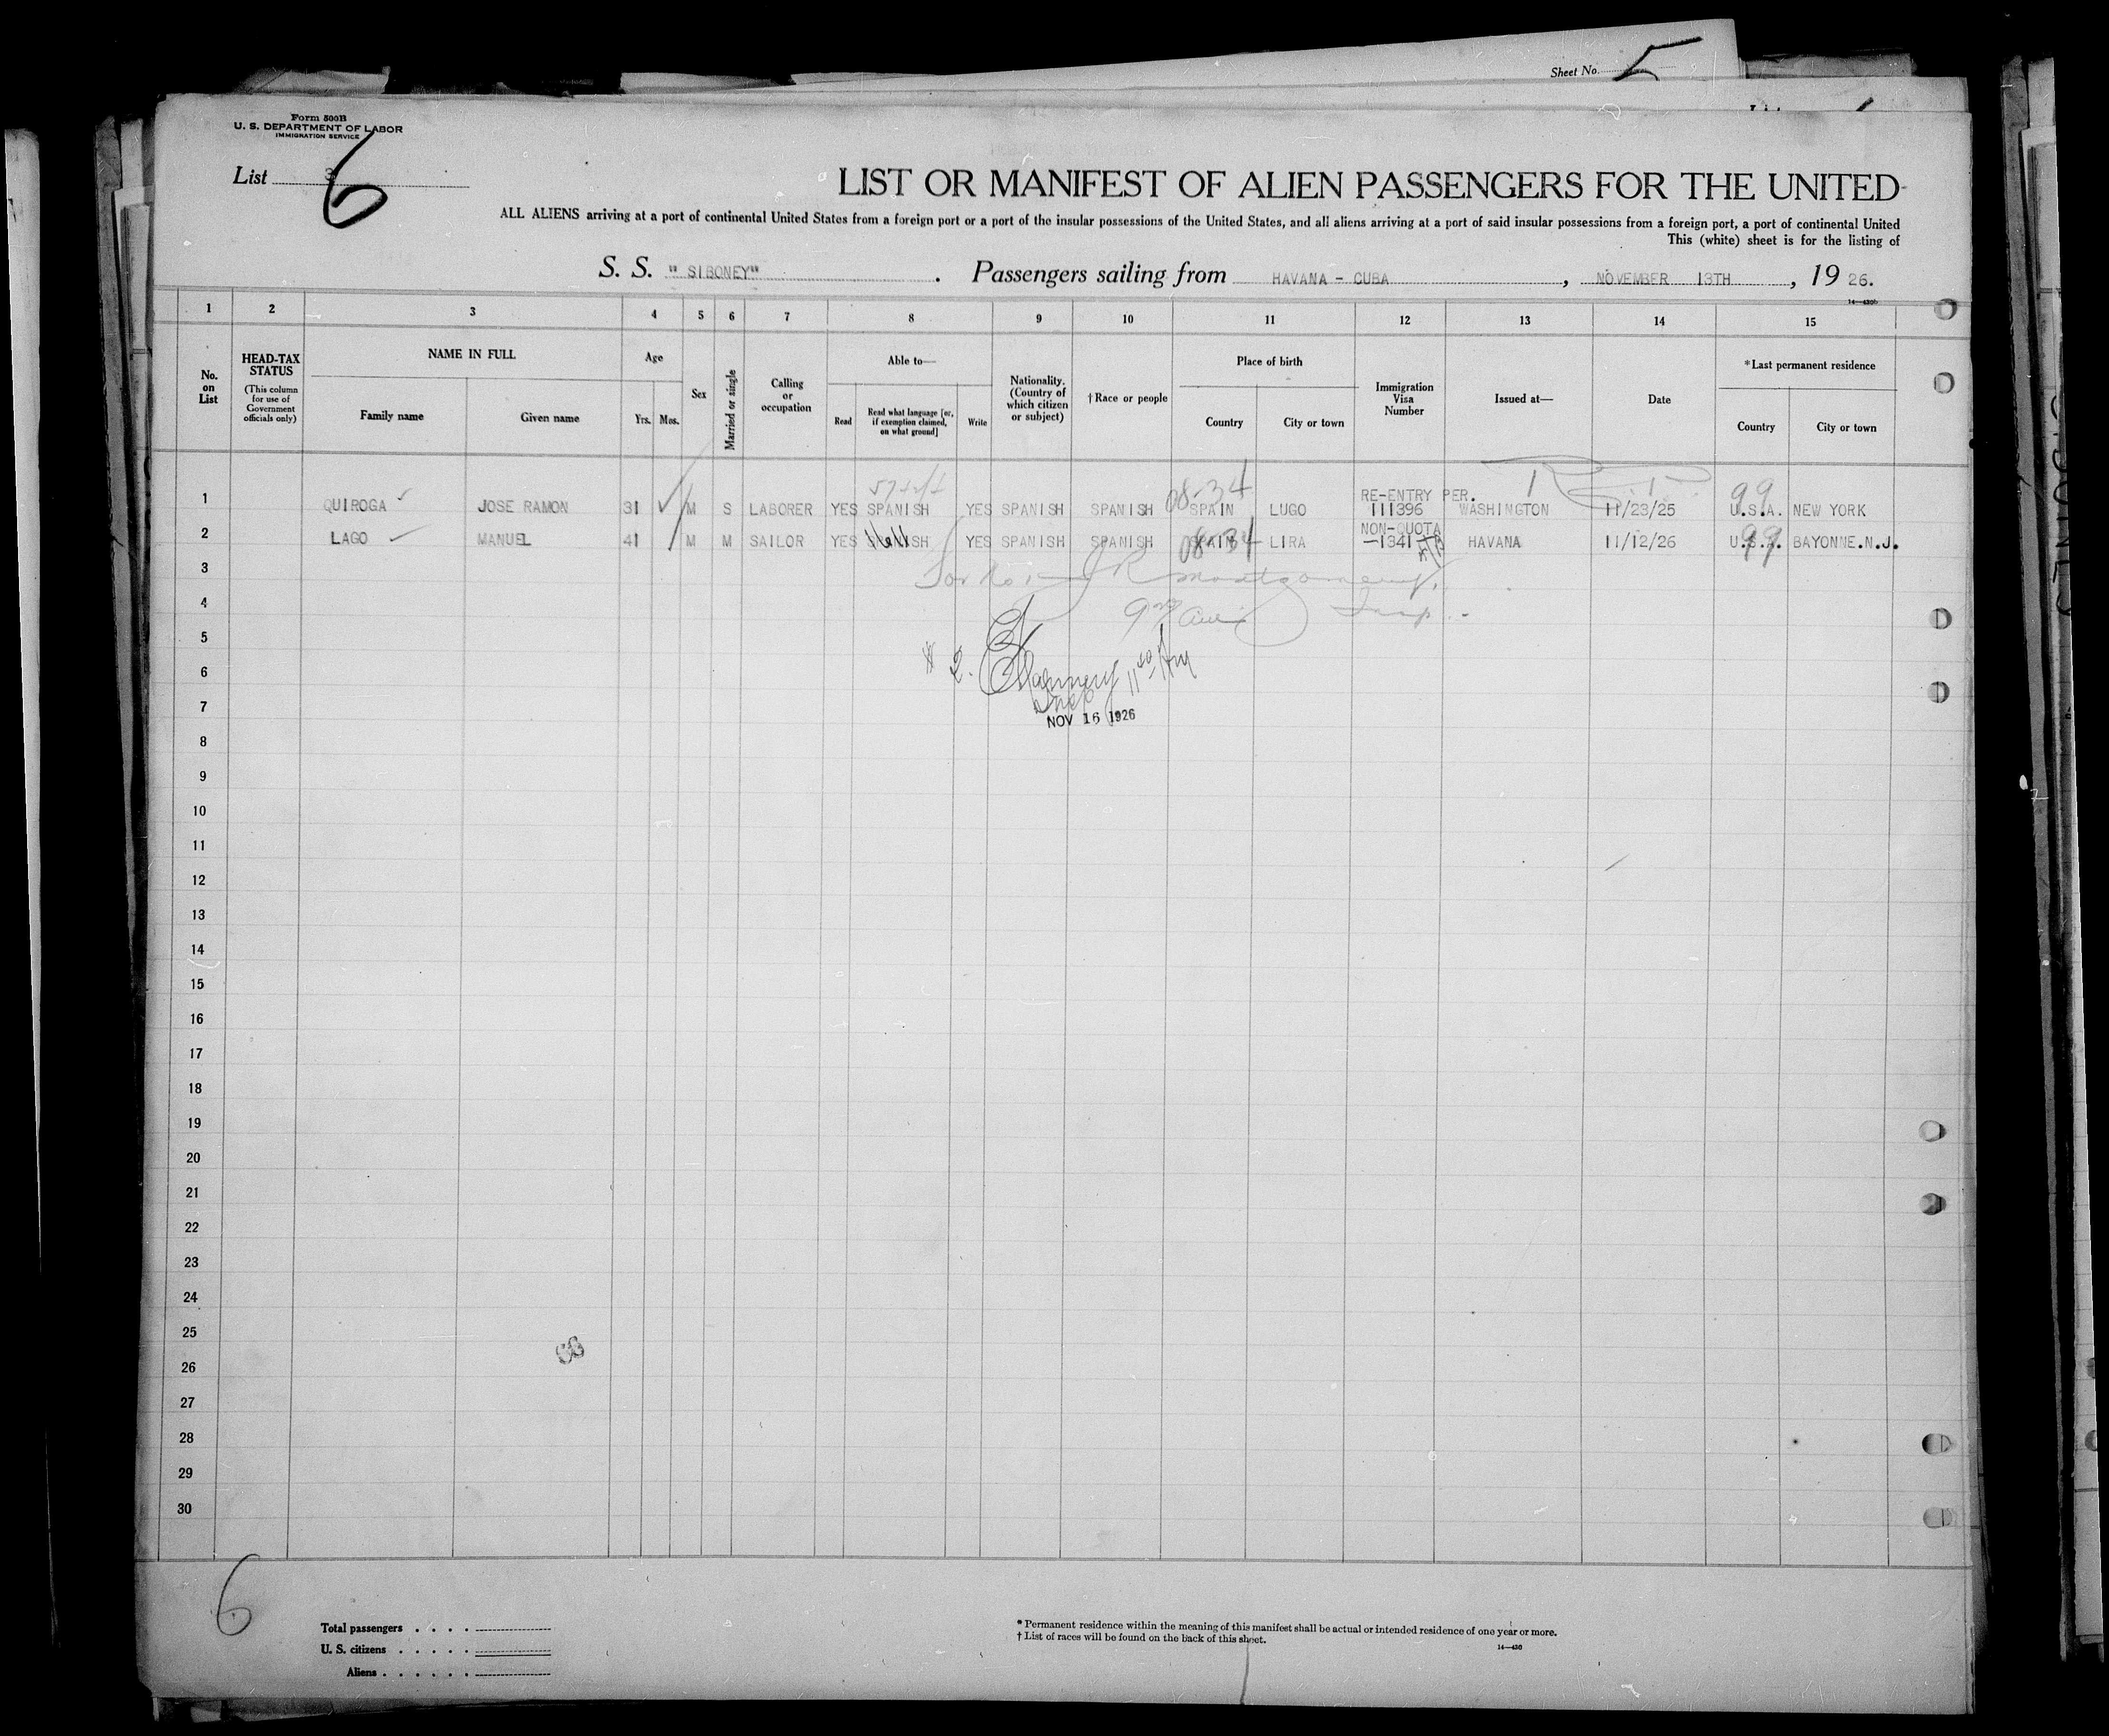 Sheet No. 5
Form 500B
U. S. DEPARTMENT OF LABOR
IMMIGRATION SERVICE
List 3
6
LIST OR MANIFEST OF ALIEN PASSENGERS FOR THE UNITED
ALL ALIENS arriving at a port of continental United States from a foreign port or a port of the insular possessions of the United States, and all aliens arriving at a port of said insular possessions from a foreign port, a port of continental United
This (white) sheet is for the listing of
S. S. "SIBONEY". Passengers sailing from HAVANA - CUBA, NOVEMBER 13TH, 19 26.
1 2 3 4 5 6 7 8 9 10 11 12 13 14 15
No. on List
HEAD-TAX STATUS
(This column for use of Government officials only)
NAME IN FULL
Family name Given name
Age
Yrs. Mos.
Sex
Married or single
Calling or occupation
Able to—
Read Read what language [or, if exemption claimed, on what ground] Write
Nationality. (Country of which citizen or subject)
† Race or people
Place of birth
Country City or town
Immigration Visa Number
Issued at—
Date
*Last permanent residence
Country City or town
08-34 99
1 QUIROGA JOSE RAMON 31 M S LABORER YES SPANISH YES SPANISH SPANISH SPAIN LUGO RE-ENTRY PER. 111396 WASHINGTON 11/23/25 U.S.A. NEW YORK
2 LAGO MANUEL 41 M M SAILOR YES SPANISH YES SPANISH SPANISH SPAIN 08-34 LIRA NON-QUOTA —1341 HAVANA 11/12/26 U.S.A. 99 BAYONNE.N.J.
3 Montgomery,
4 Insp.
5
6 # 2.
7 NOV 16 1926
8
9
10
11
12
13
14
15
16
17
18
19
20
21
22
23
24
25
26
27
28
29
30
6
Total passengers
U. S. citizens
Aliens
* Permanent residence within the meaning of this manifest shall be actual or intended residence of one year or more.
† List of races will be found on the back of this sheet.